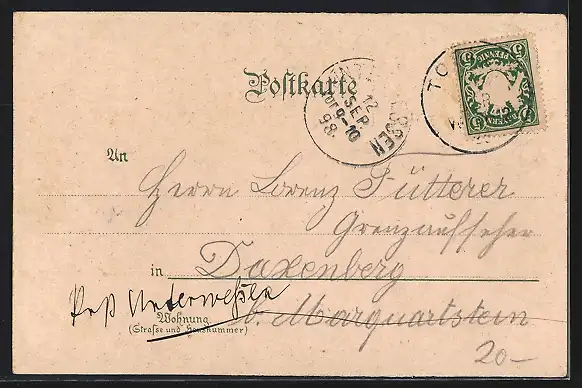 Postkarte
12
SEP
98
TO
BAYERN
An
Herrn Lorenz Fütterer
Grenzaufseher
in Daxenberg
Post Unterwessen
b. Marquartstein
Wohnung
(Strasse und Hausnummer)
20-